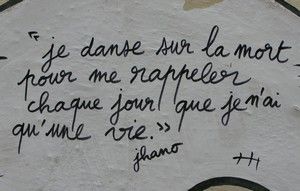 “je danse sur la mort
pour me rappeler
chaque jour que je n'ai
qu'une vie.”
jhano